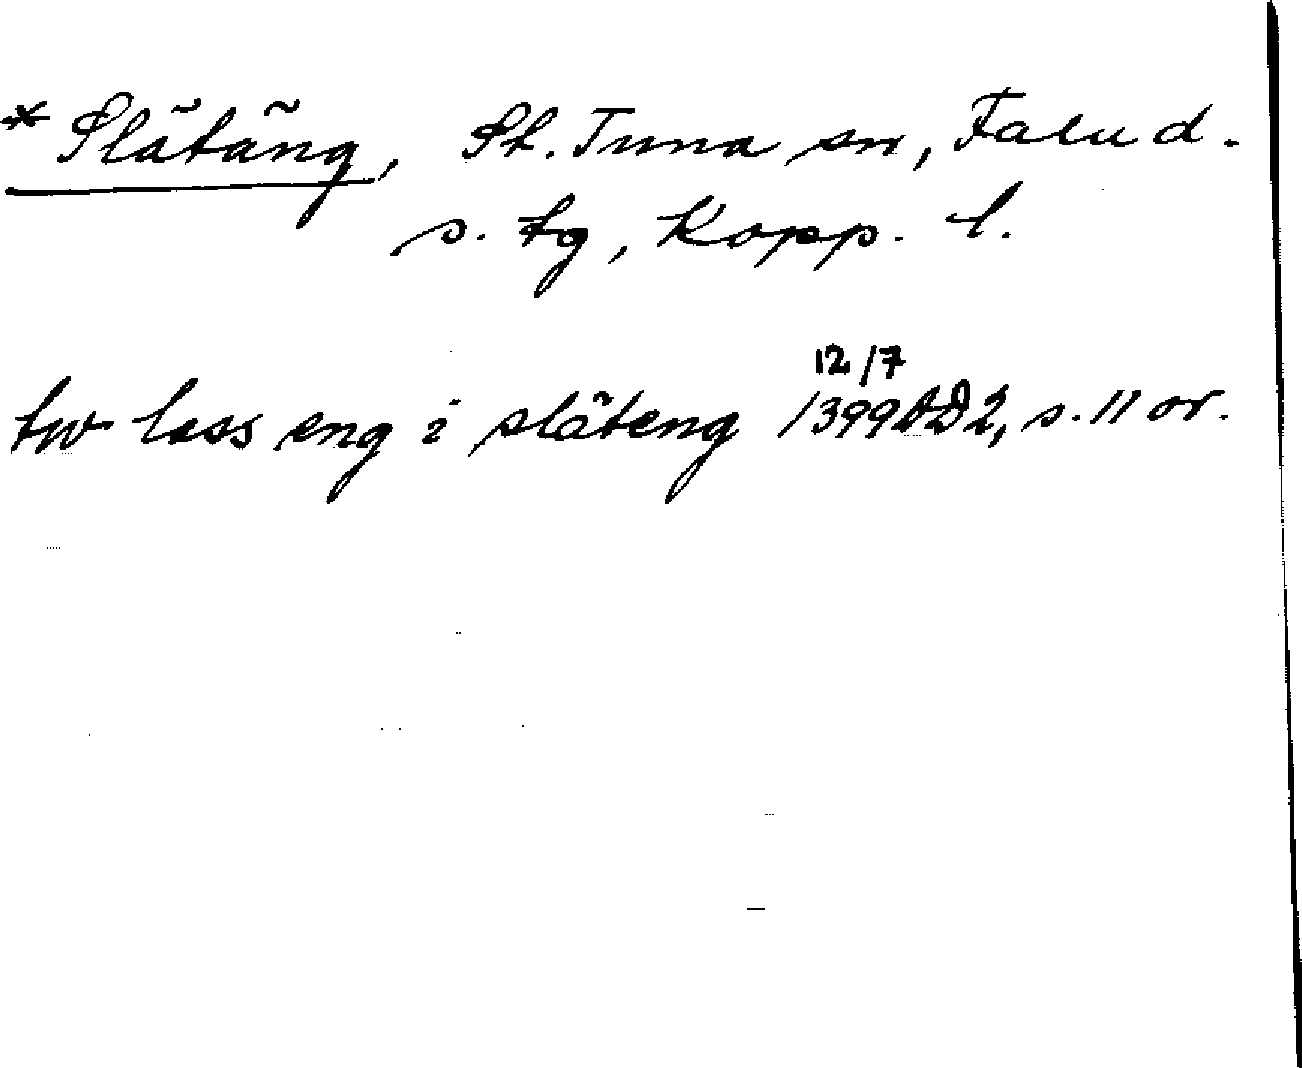 * Slätäng, St. Tuna sn, Falu d.
s. tg, Kopp. l.
12/7
tw lass eng i släteng 1399 DD2, s. 11 or.